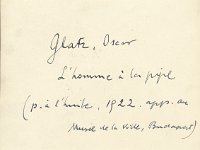 Glatz, Oscar
L'homme à la pipe
(p. à l'huile, 1922. app. au
Musée de la Ville, Budapest)